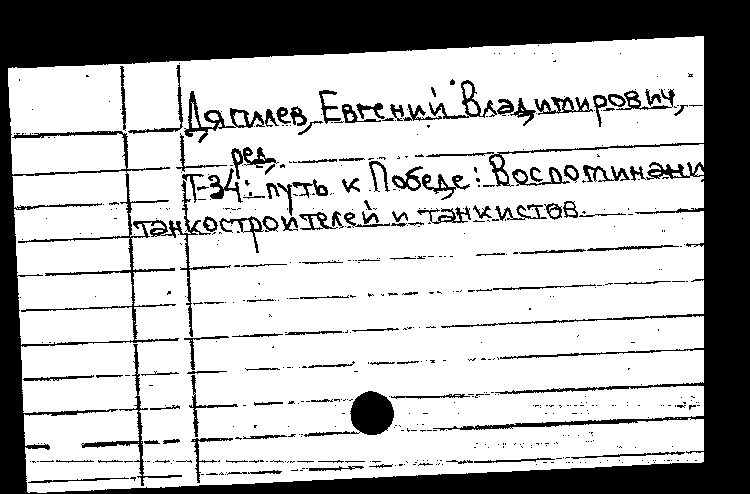 Дягилев, Евгений Владимирович,
ред.
Т-34: путь к Победе: Воспоминани
танкостроителей и танкистов.